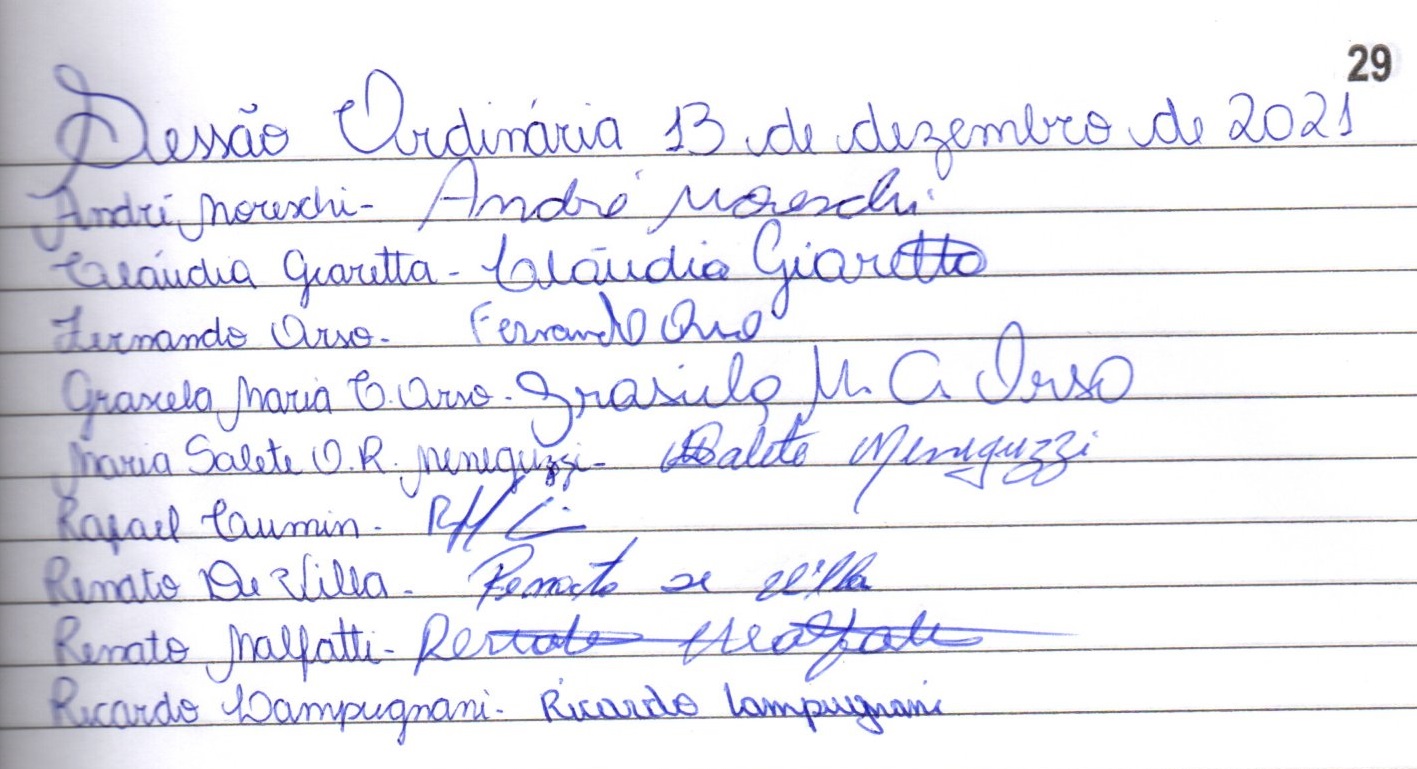 29
Sessão Ordinária 13 de dezembro de 2021
André Moreschi - André Moreschi
Cláudia Giaretta - Cláudia Giaretta
Fernando Orso - Fernando Orso
Grasiela Maria C. Orso - Grasiela M. C. Orso
Maria Salete O. R. Meneguzzi - Salete Meneguzzi
Rafael Caumin -
Renato De Villa - Renato de Villa
Renato Malfatti - Renato Malfatti
Ricardo Lampugnani - Ricardo Lampugnani